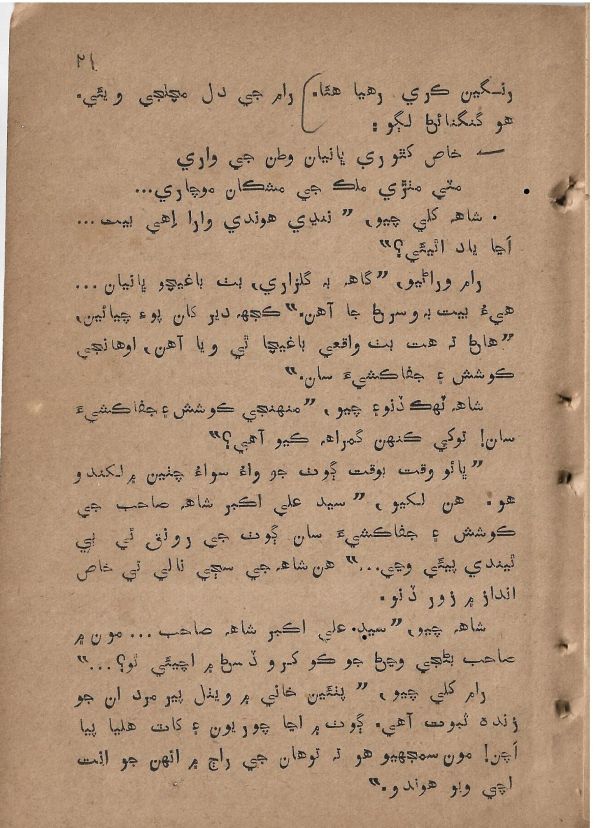 ٢١
رنگين ڪري رهيا هئا. رام جي دل مچلجي ويئي.
هو گنگنائڻ لڳو:
— خاص کٿوري ڀانيان وطن جي واري
مٽي مٺڙي ملڪ جي مشڪان موچاري...
شاهه کلي چيو, ”ننڍي هوندي وارا اِهي بيت...
اڃا ياد اٿيئي؟“
رام وراڻيو, ”گاهه به گلزاري, بٺ باغيچو ڀانيان...
هيءُ بيت به وسرڻ جا آهن.“ ڪجهه دير کان پوءِ چيائين,
”هاڻ ته هت بٺ واقعي باغيچا ٿي ويا آهن, اوهانجي
ڪوشش ۽ جفاڪشيءَ سان.“
شاهه ٽهڪ ڏنو ۽ چيو, ”منهنجي ڪوشش ۽ جفاڪشيءَ
سان! توکي ڪنهن گمراهه ڪيو آهي؟“
”ڀائو وقت بوقت ڳوٺ جو واءُ سواءُ چٺين ۾ لکندو
هو. هن لکيو, ”سيد علي اڪبر شاهه صاحب جي
ڪوشش ۽ جفاڪشيءَ سان ڳوٺ جي رونق ئي ٻي
ٿيندي پيئي وڃي...“ هن شاهه جي سڄي نالي تي خاص
انداز ۾ زور ڏنو.
شاهه چيو, ”سيد. علي اڪبر شاهه صاحب... مون ۾
صاحب بڻجي وڃڻ جو ڪو ڪرو ڏسڻ ۾ اچيئي ٿو؟...“
رام کلي چيو, ”پٺئين خاني ۾ ويٺل پير مرد ان جو
زنده ثبوت آهي. ڳوٺ ۾ اڃا چوريون ۽ کاٽ هليا پيا
اچن! مون سمجهيو هو ته توهان جي راڄ ۾ انهن جو انت
اچي ويو هوندو.“